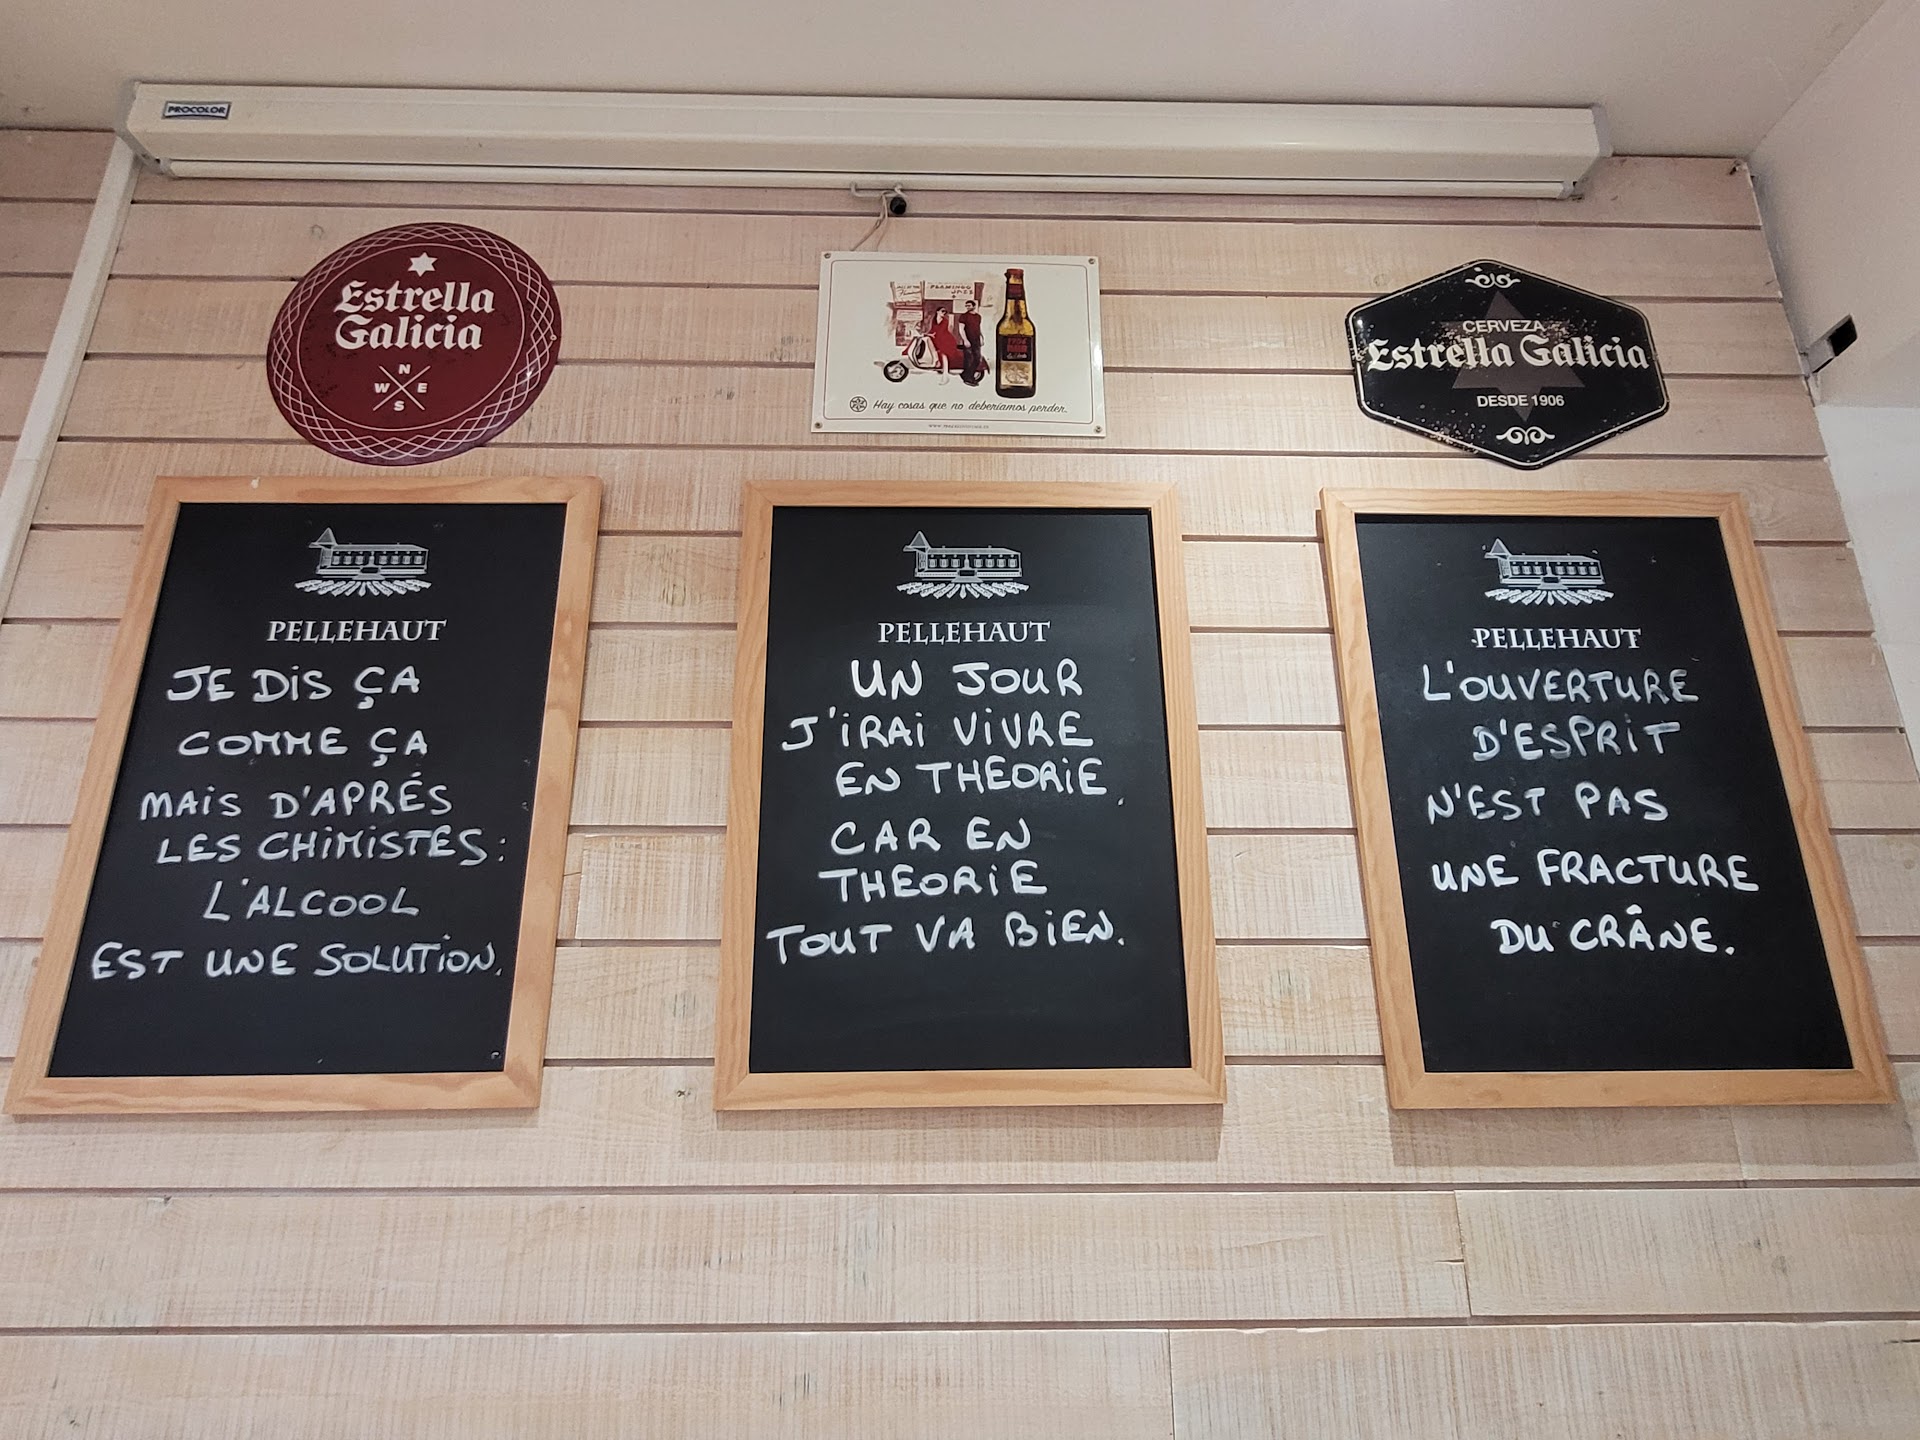 PROCOLOR
Estrella
Galicia
N
W E
S
FLAMINGO
JAZZ
Hay cosas que no deberíamos perder.
CERVEZA
Estrella Galicia
DESDE 1906
PELLEHAUT
JE DIS ÇA
COMME ÇA
MAIS D'APRÉS
LES CHIMISTES:
L'ALCOOL
EST UNE SOLUTION.
PELLEHAUT
UN JOUR
J'IRAI VIVRE
EN THEORIE,
CAR EN
THEORIE
TOUT VA BIEN.
PELLEHAUT
L'OUVERTURE
D'ESPRIT
N'EST PAS
UNE FRACTURE
DU CRÂNE.